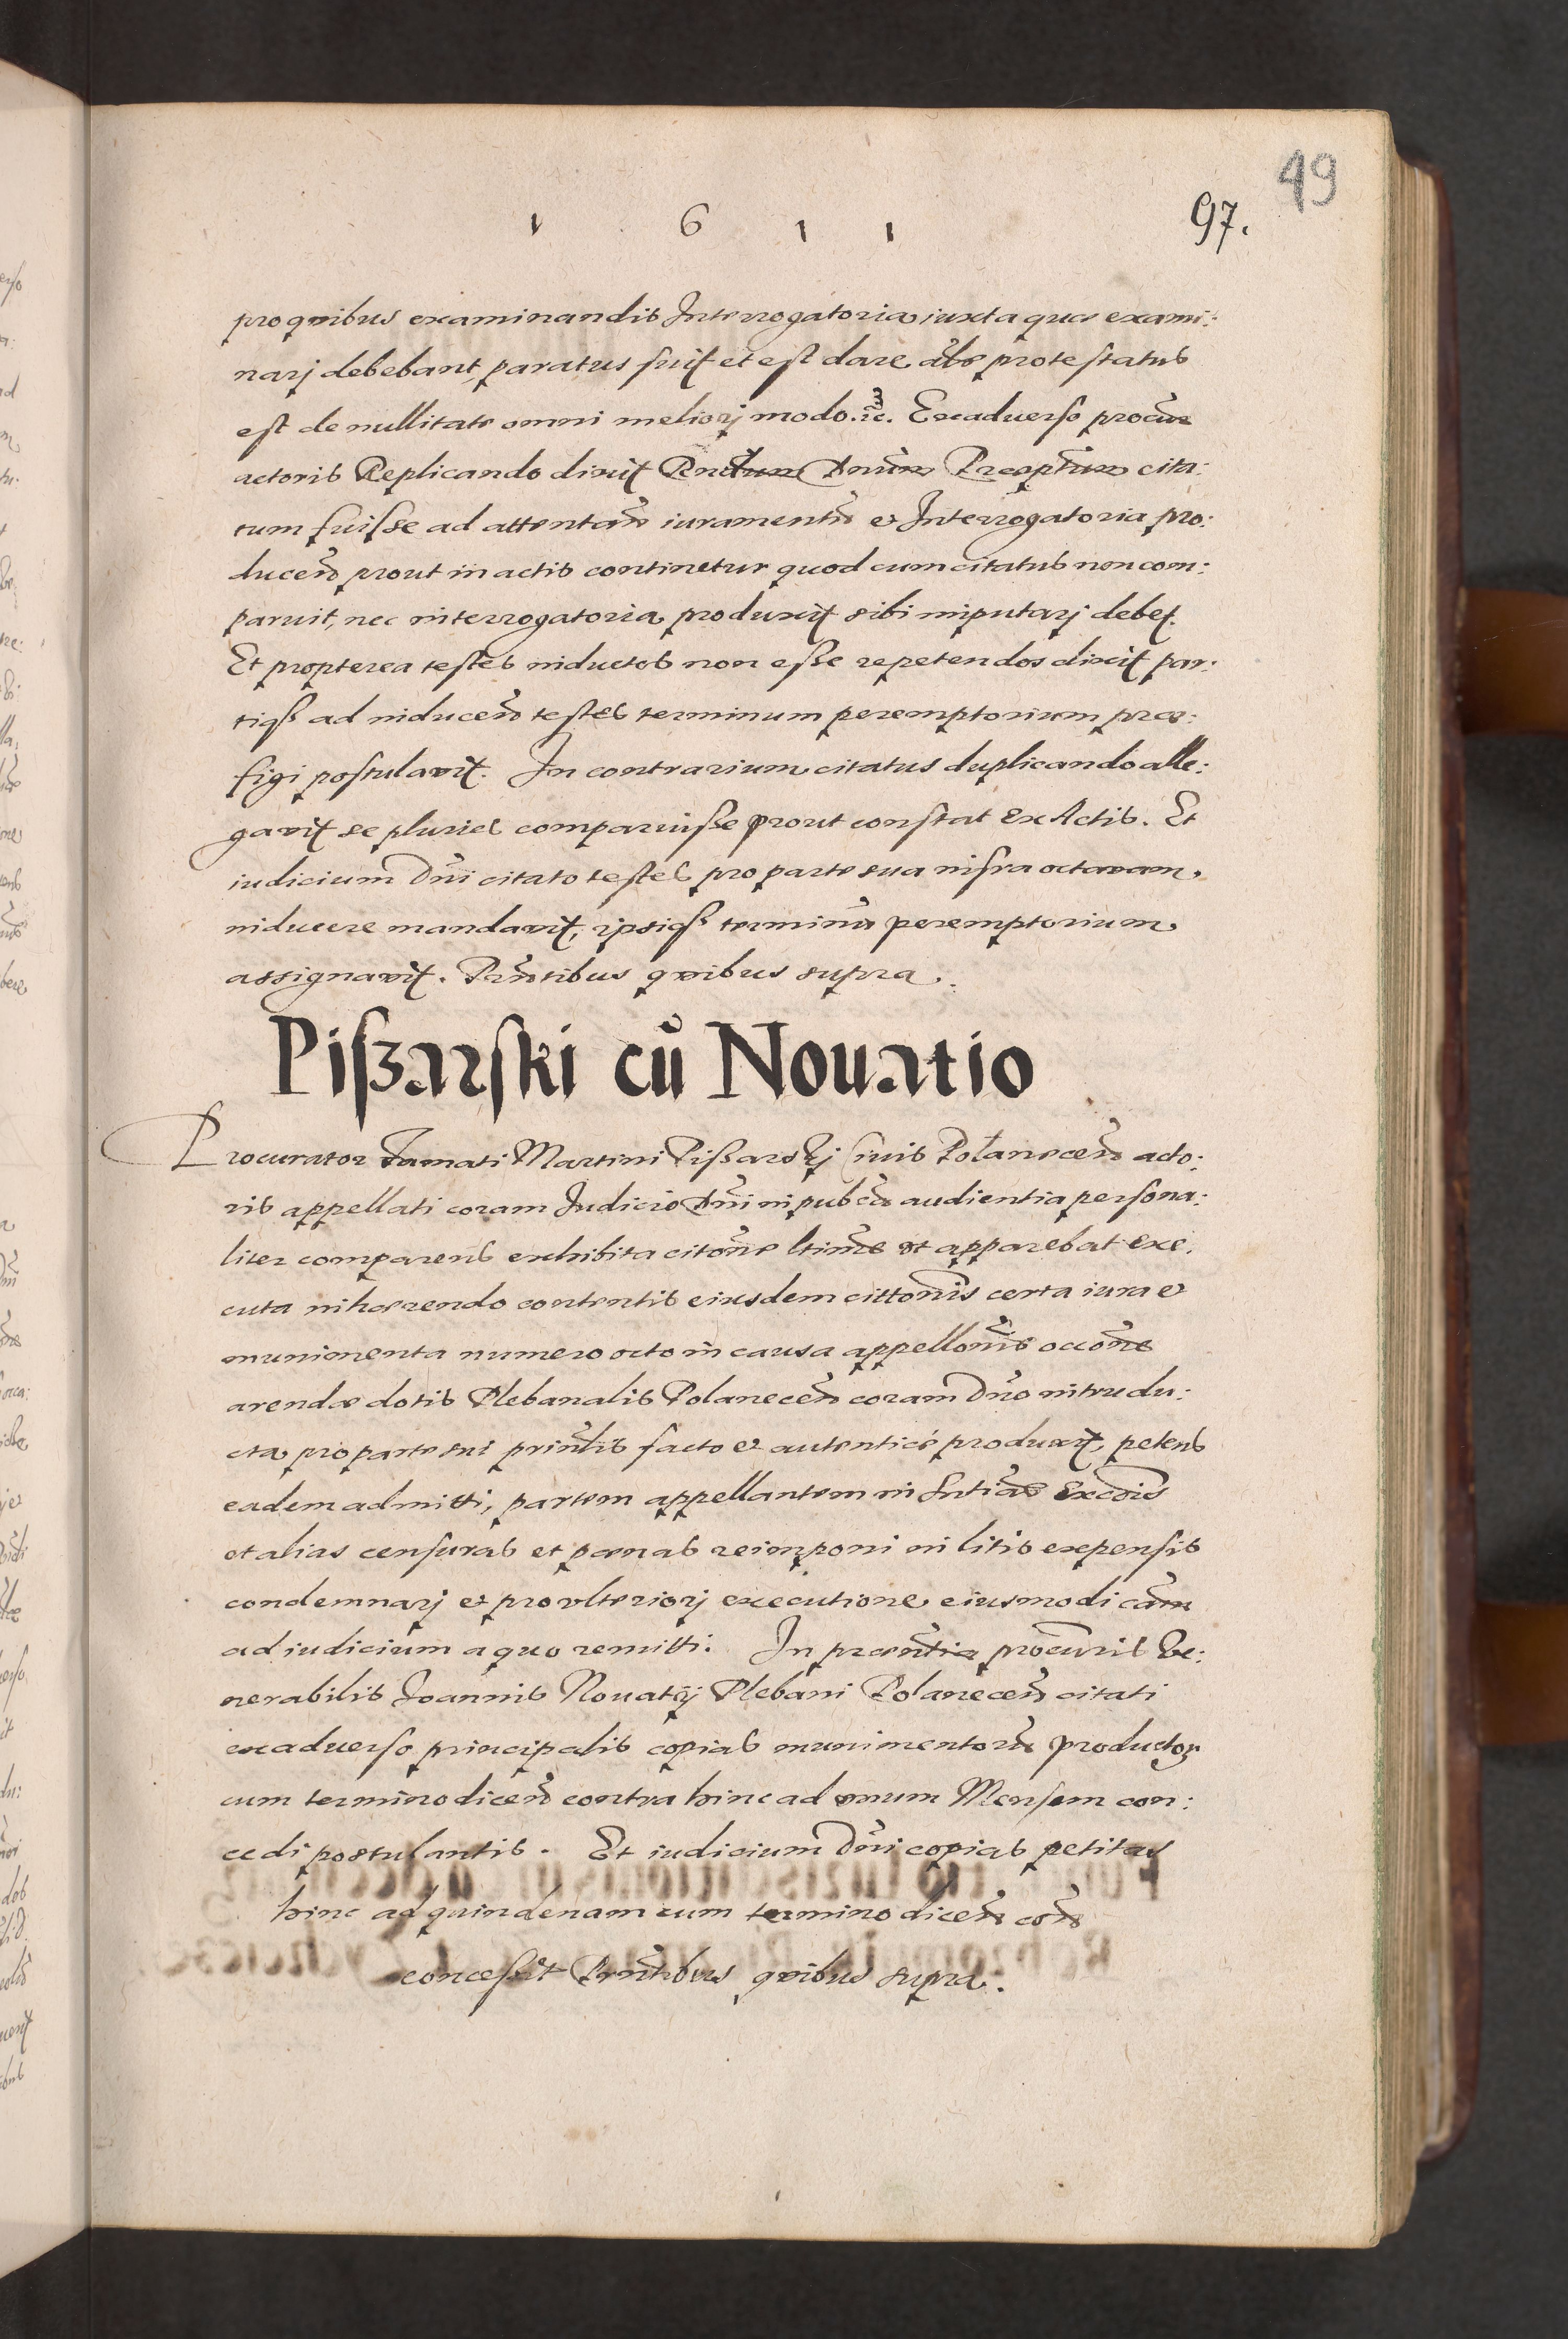 49
1 6 1 1 97.
pro quibus examinandis Interrogatoria iuxta quæ exami:
narj debebant, paratus fuit et est dare als protestatus
est de nullitate omni meliorj modo. etc. Exaduerso procur
actoris Replicando dixit Rndum Dnum Præceptum cita:
tum fuisse ad attentan iuramentū et Interrogatoria pro:
ducend prout in actis continetur quod cum citatus non com:
paruit, nec interrogatoria produxit sibi imputarj debet.
Et propterea testes inductos non esse repetendos dixit par:
tiqʒ ad inducend testes terminum peremptorium præ:
figi postulavit. In contrarium citatus duplicando alle:
gavit se pluries comparuisse prout constat ex Actis. Et
iudicium Dni citato testes pro parte sua infra octavam
inducere mandavit, ipsiqʒ terminū peremptorium
assignavit. Pñtibus quibus supra.
Pißarski cū Nouatio
Procurator Famati Martini Pißarskj Ciuis Polanecen acto:
ris appellati coram Judicio Dni in pubca audientia persona:
liter comparens exhibita citone ltime ut apparebat exe.
cuta inhærendo contentis eiusdem cittonis certa iura et
munimenta numero octo in causa appellonis occone
arendæ dotis Plebanalis Polanecen coram Dno introdu:
cta pro parte sui prinlis facto et autenticè produxit, petens
eadem admitti, partem appellantem in sntias excois
et alias censuras et pœnas reimponi in litis expensis
condemnarj et pro vlteriorj executione eiusmodi cam
ad iudicium a quo remitti. In præsntia procuris Ve:
nerabilis Joannis Nouatij Plebani Polanecen citati
exaduerso principalis copias munimentorū productor
cum termino dicen contra hinc ad unum Mensem con:
cedi postulantis. Et iudicium Dni copias petitas
hinc ad quindenam cum termino dicen con
concessit Prntibus quibus supra.